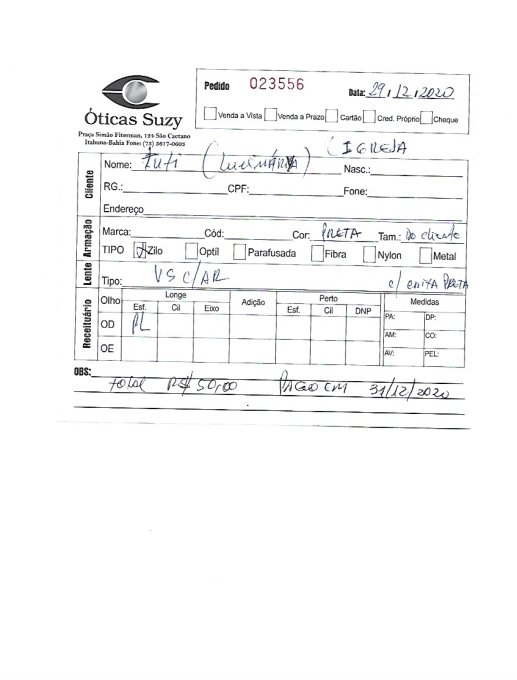 Pedido 023556 Data: 29/12/2020
Óticas Suzy
Venda a Vista Venda a Prazo Cartão Cred. Próprio Cheque
Praça Simão Fiterman, 124 São Caetano
Itabuna-Bahia Fone: (73) 3617-0603
(IGREJA
Cliente
Nome: (Lucimária) Nasc.:
RG.: CPF: Fone:
Endereço
Armação
Marca: Cód: Cor: PRETA Tam.: Do cliente
TIPO Zilo Optil Parafusada Fibra Nylon Metal
Lente
Tipo: VS C/AR c/ PRETA
Receituário
Olho Longe Adição Perto Medidas
Esf. Cil Eixo Esf. Cil DNP PA: DP:
OD PL AM: CO:
OE AV: PEL:
OBS:
Total R$ 50,00 PAGO EM 31/12/2020